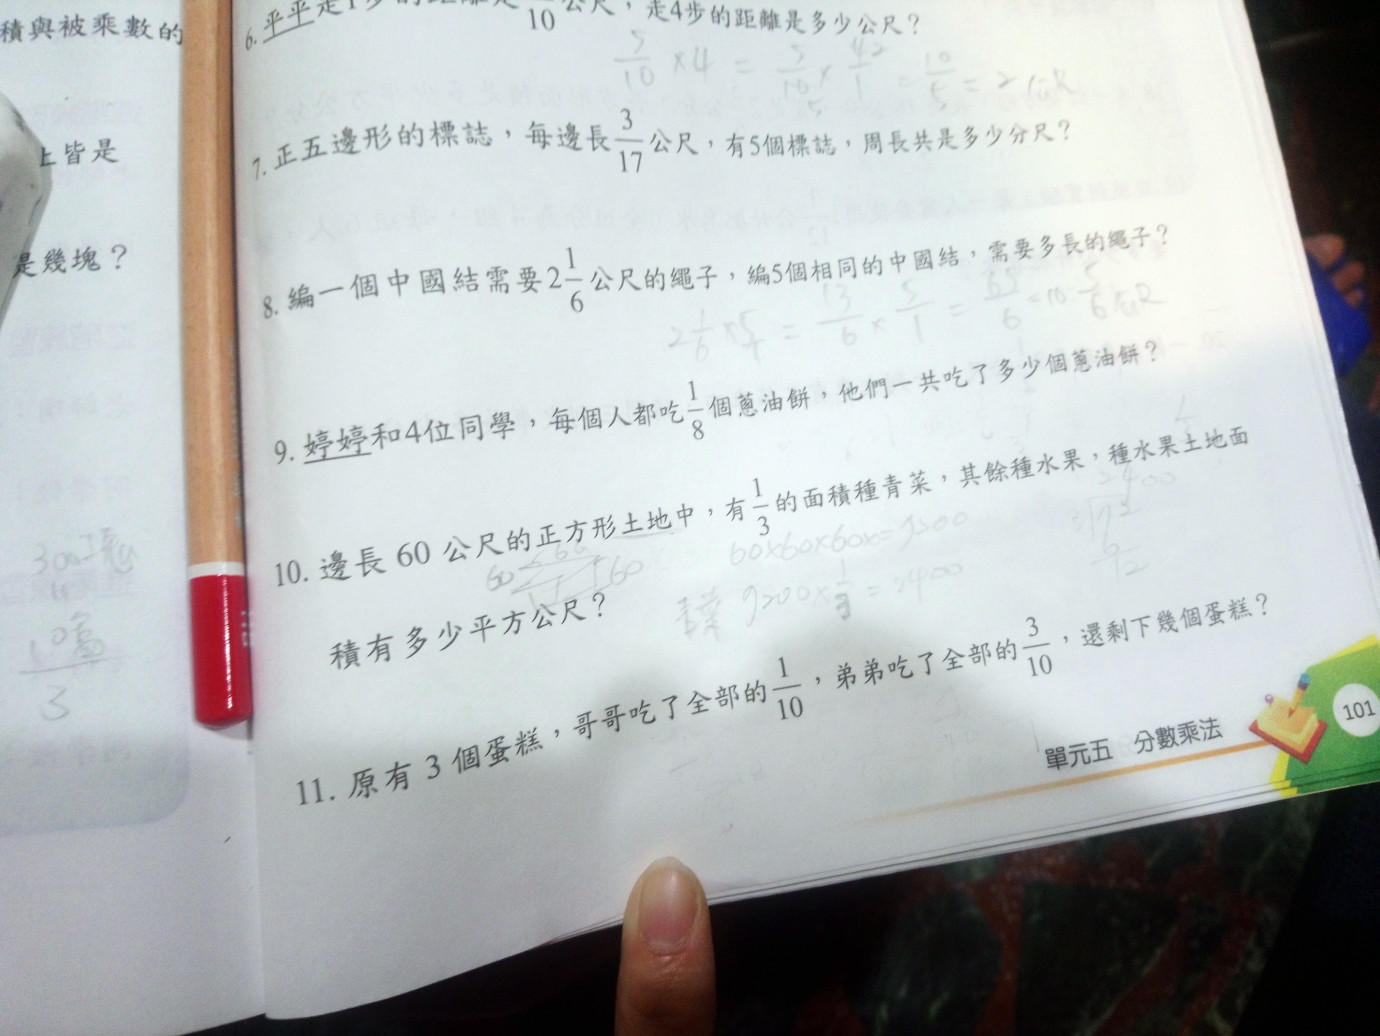 積與被乘數的
上皆是
是幾塊？
10
3
6. 平平走1步的距離是 10 公尺，走4步的距離是多少公尺？
5/10 × 4 = 5/10 × 4/1 = 10/5 = 2
7. 正五邊形的標誌，每邊長3/17公尺，有5個標誌，周長共是多少分尺？
8. 編一個中國結需要2 1/6公尺的繩子，編5個相同的中國結，需要多長的繩子？
2 1/6 × 5/1 = 13/6 × 5/1 = 65/6 = 10 5/6
9. 婷婷和4位同學，每個人都吃1/8個蔥油餅，他們一共吃了多少個蔥油餅？
10. 邊長 60 公尺的正方形土地中，有1/3的面積種青菜，其餘種水果，種水果土地面
60 60 60
積有多少平方公尺？
11. 原有 3 個蛋糕，哥哥吃了全部的1/10，弟弟吃了全部的3/10，還剩下幾個蛋糕？
單元五 分數乘法
101